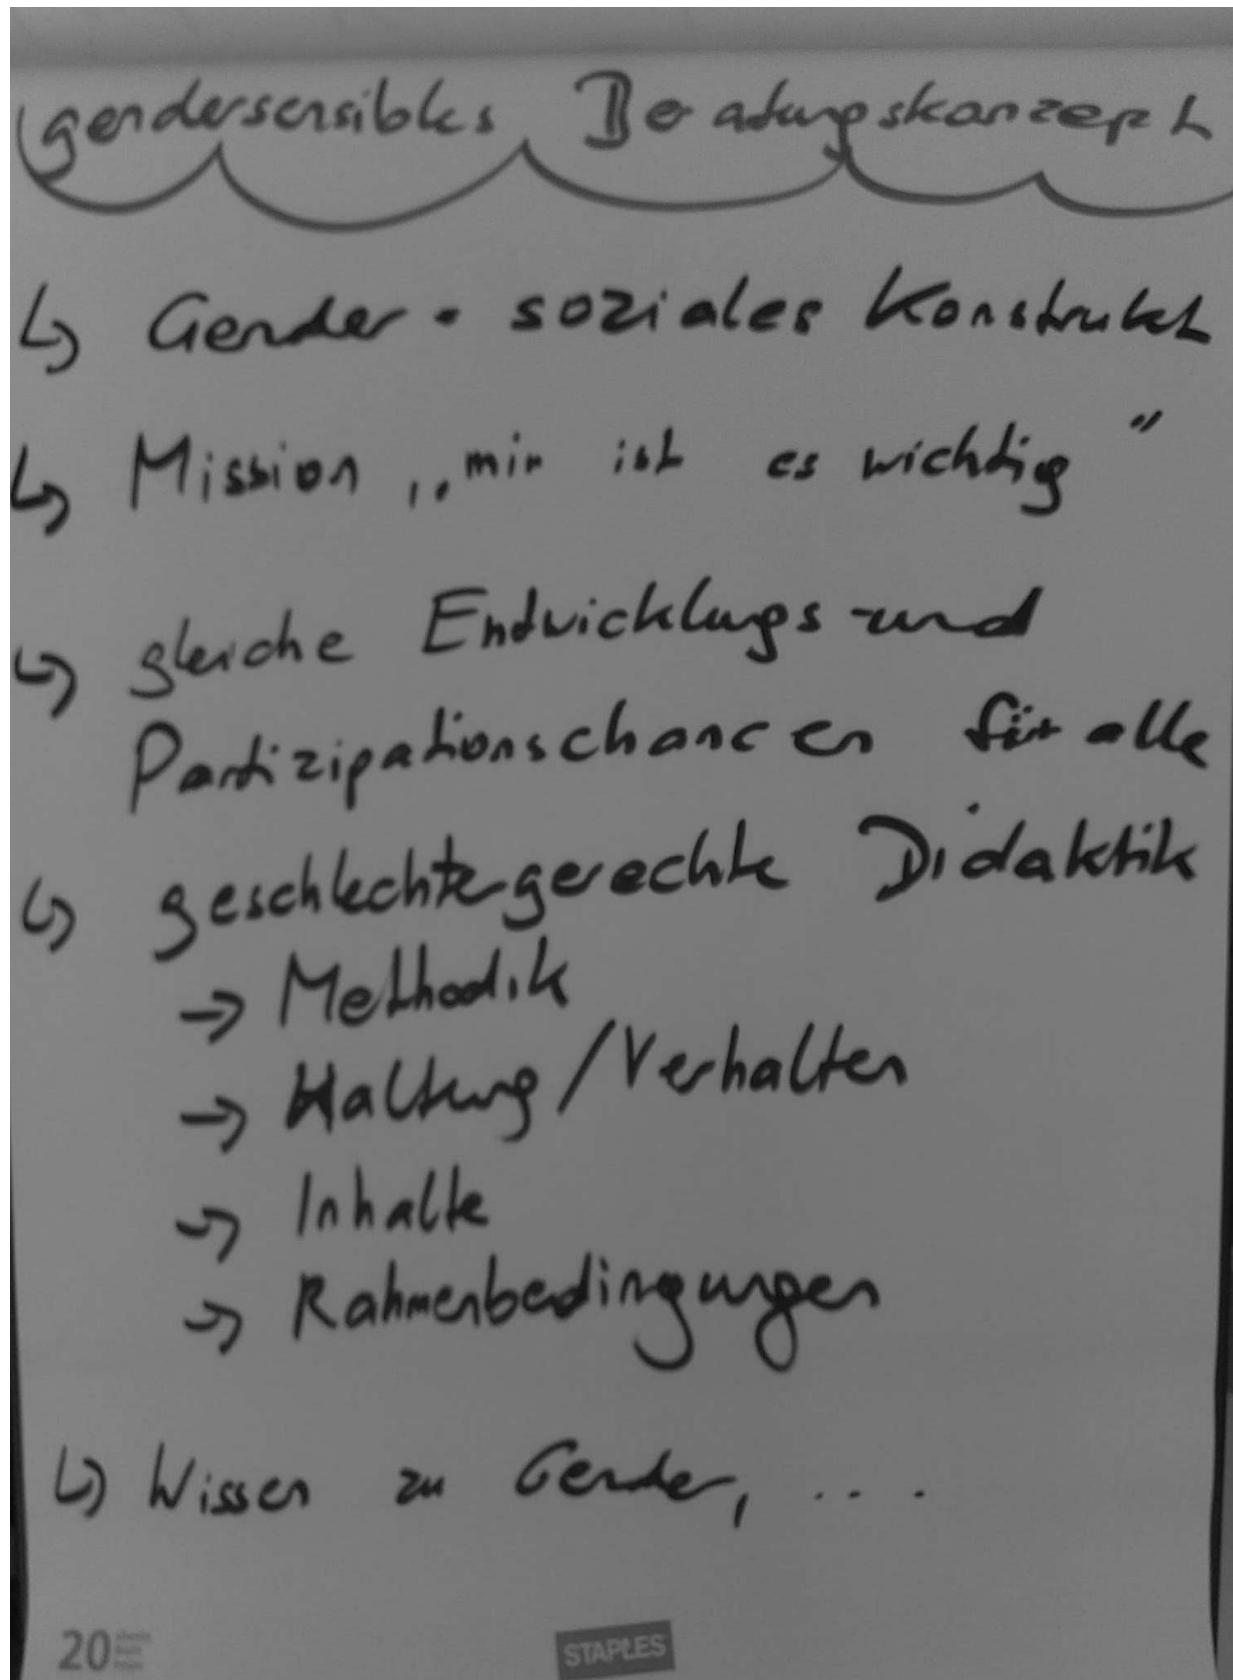 gendersensibles Beratungskonzept
↳ Gender • soziales Konstrukt
↳ Mission „mir ist es wichtig"
↳ gleiche Entwicklungs-und
Partizipationschancen für alle
↳ geschlechtergerechte Didaktik
→ Methodik
→ Haltung/Verhalten
→ Inhalte
→ Rahmenbedingungen
↳ Wissen zu Gender, ....
20
STAPLES